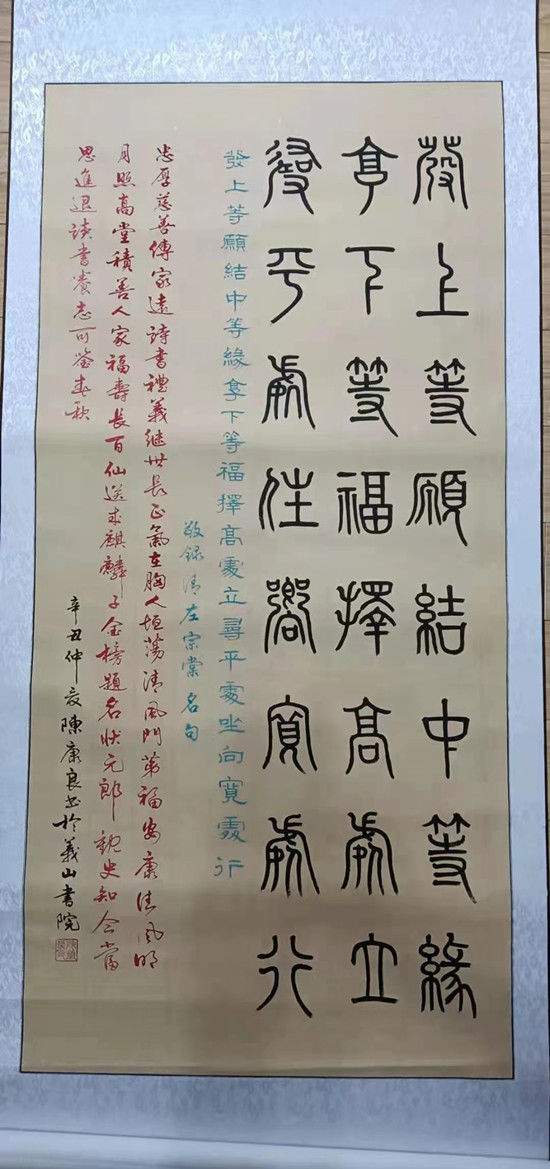 發上等願結中等緣
享下等福擇高處立
尋平處住嚮寬處行
發上等願結中等緣享下等福擇高處立尋平處坐向寬處行
敬録清左宗棠名句
忠厚慈善傳家遠詩書禮義继世長正氣在胸人坦蕩清風門第福安康清風明
月照高堂積善人家福壽長百仙送来麒麟子金榜題名状元郎觀史知今當
思進退读書養志可鉴春秋
辛丑仲夏陳康良书於義山書院